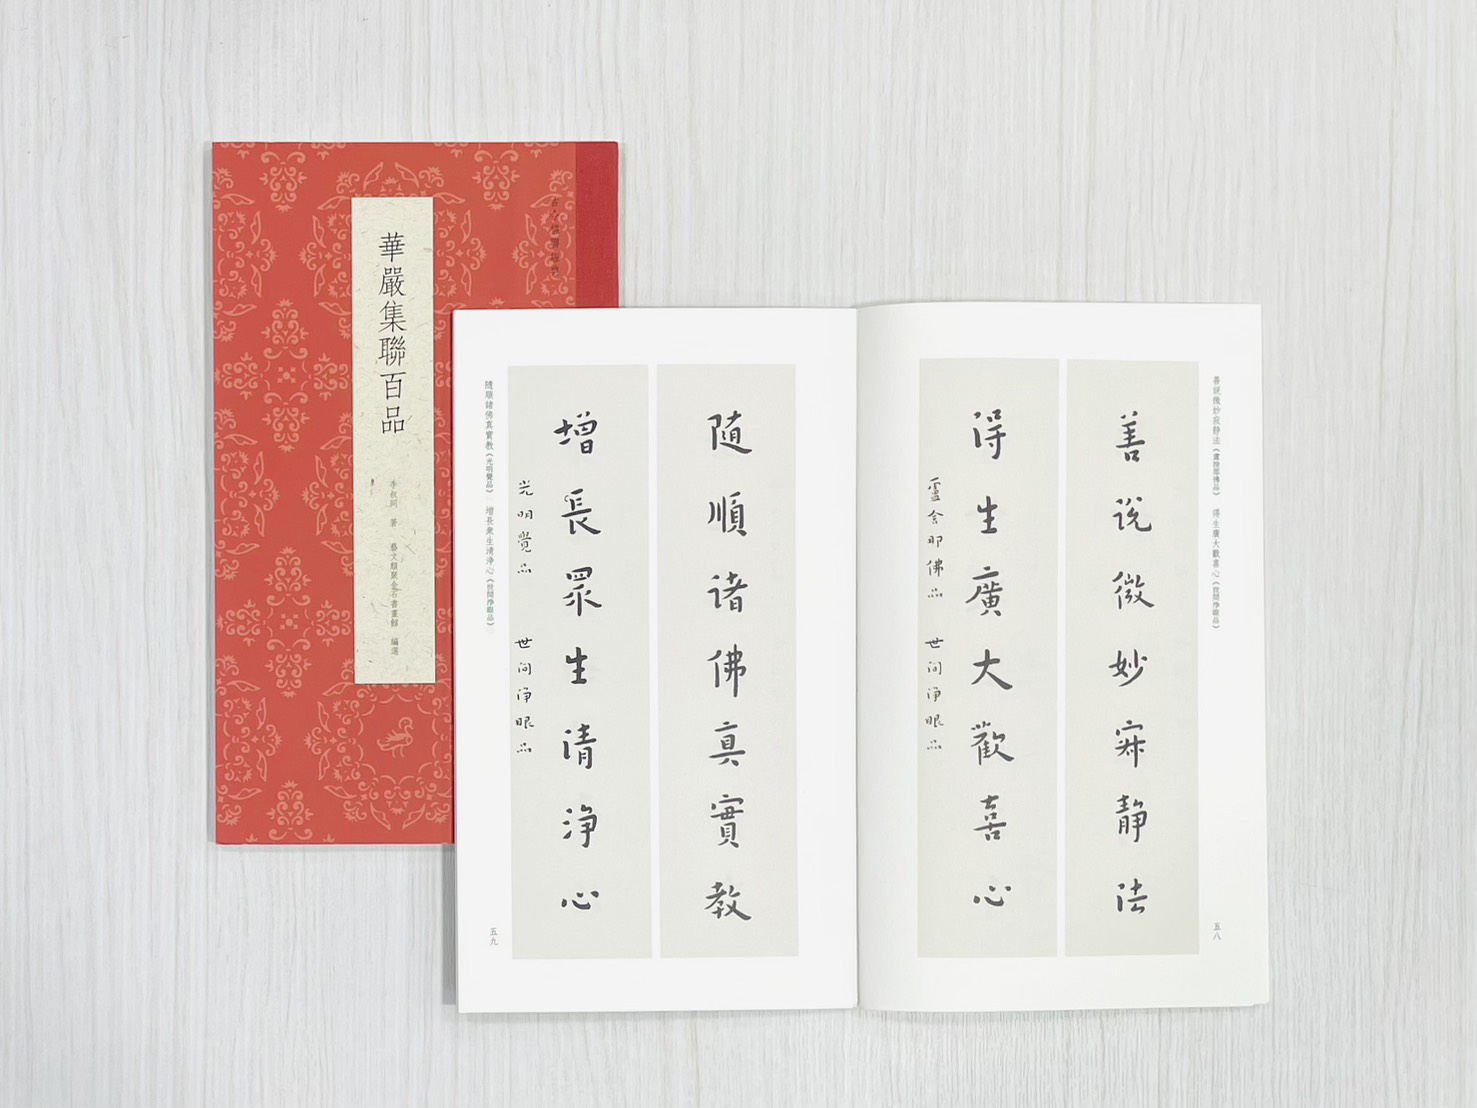 華嚴集聯百品
李叔同 著 藝文類聚金石書畫館 編選
善說微妙寂靜法《盧舍那佛品》 得生廣大歡喜心《世間淨眼品》
善說微妙寂靜法
得生廣大歡喜心
盧舍那佛品 世间淨眼品
五八
随順诸佛真實教
增長眾生清淨心
光明覺品 世间淨眼品
隨順諸佛真實教《光明覺品》 增長衆生清淨心《世間淨眼品》
五九